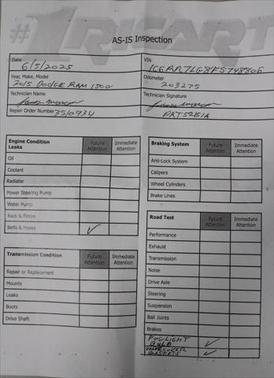 #1 RICART
AS-IS Inspection
Date 6/5/2025
VIN
Year, Make, Model
2015 DODGE RAM 1500
Odometer
203275
Technician Name
Technician Signature
Repair Order Number
Engine Condition Future Attention Immediate Attention
Leaks
Oil
Coolant
Radiator
Power Steering Pump
Water Pump
Rack & Pinion
Belts & Hoses ✓
Transmission Condition Future Attention Immediate Attention
Repair or Replacement
Mounts
Leaks
Boots
Drive Shaft
Braking System Future Attention Immediate Attention
Anti-Lock System
Calipers
Wheel Cylinders
Brake Lines
Road Test Future Attention Immediate Attention
Performance
Exhaust
Transmission
Noise
Drive Axle
Steering
Suspension
Ball Joints
Brakes
FOGLIGHT
BULB ✓
✓